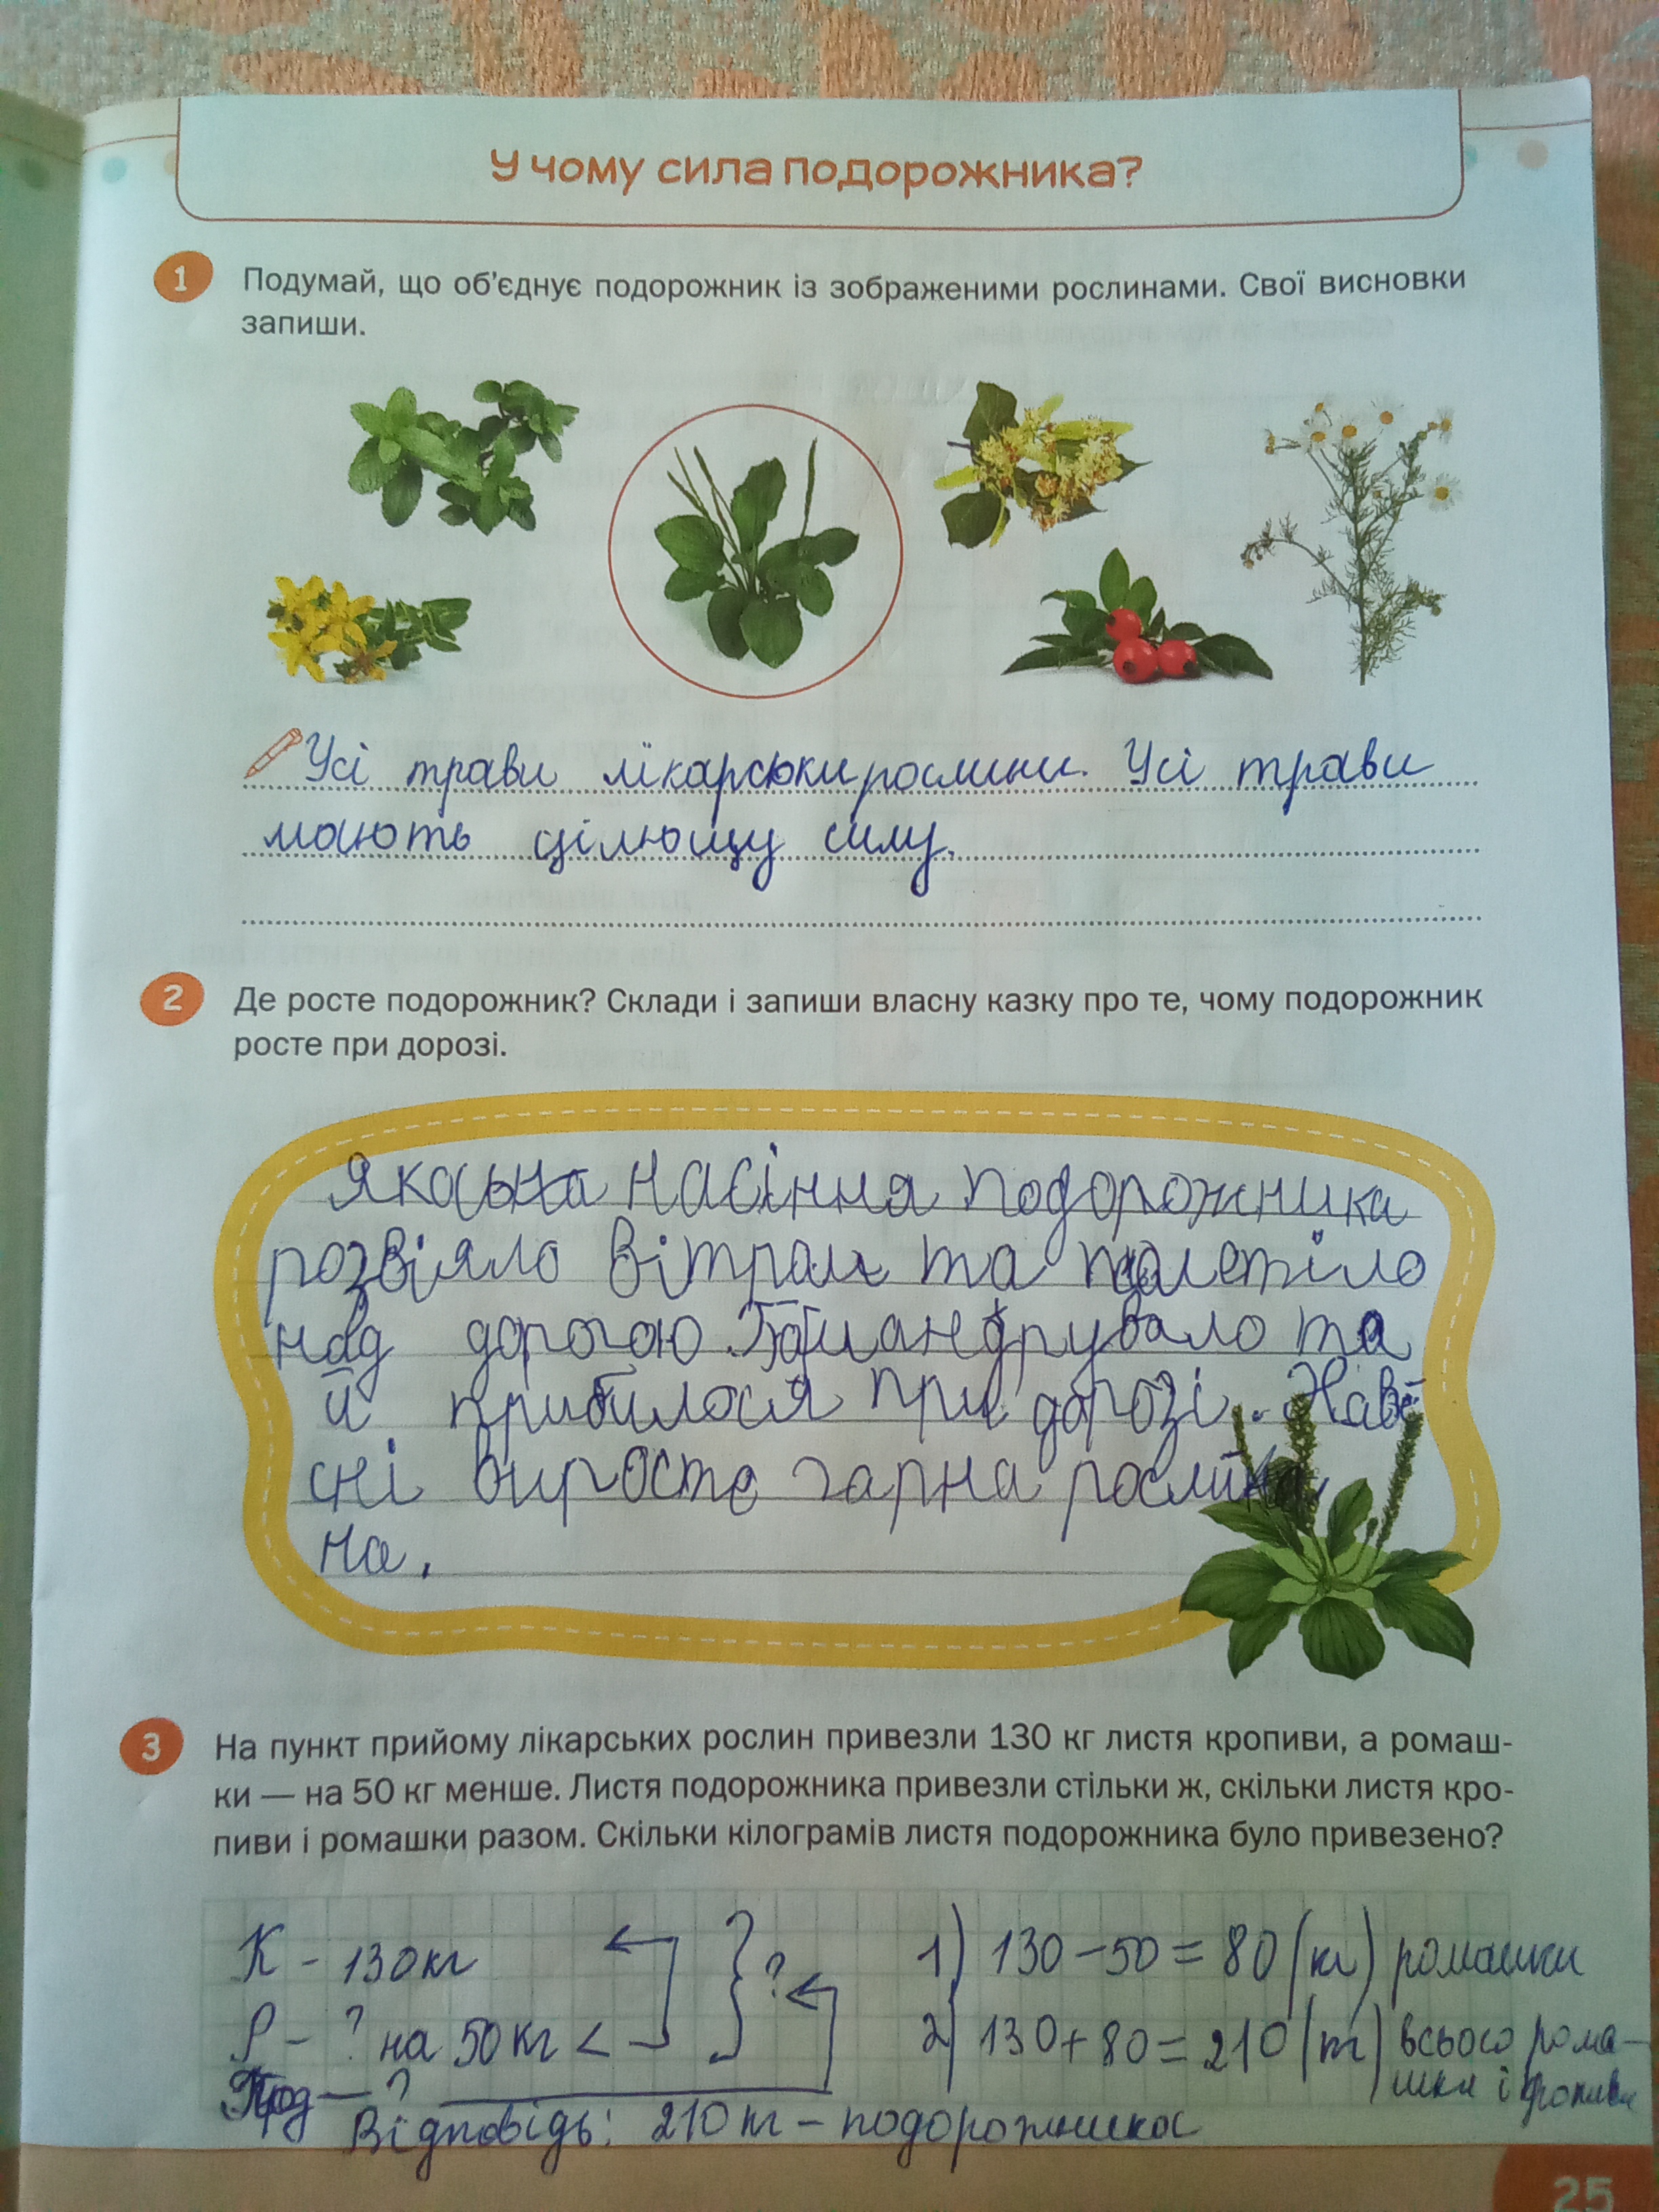 У чому сила подорожника?
1 Подумай, що об'єднує подорожник із зображеними рослинами. Свої висновки
запиши.
Усі трави лікарськи рослини. Усі трави
мають цілющу силу.
2 Де росте подорожник? Склади і запиши власну казку про те, чому подорожник
росте при дорозі.
насіння подорожника
розвіяло вітром та полетіло
над дорогою. та
й прибилося при дорозі. Наве
сні виросте гарна рослина
на.
3 На пункт прийому лікарських рослин привезли 130 кг листя кропиви, а ромаш-
ки — на 50 кг менше. Листя подорожника привезли стільки ж, скільки листя кро-
пиви і ромашки разом. Скільки кілограмів листя подорожника було привезено?
К - 130кг } ? 1) 130-50=80 (кг) ромашки
Р - ? на 50 кг < 2) 130+80=210 (кг) всього рома-
Под — ? шки і кропиви
Відповідь: 210 кг - подорожника
25